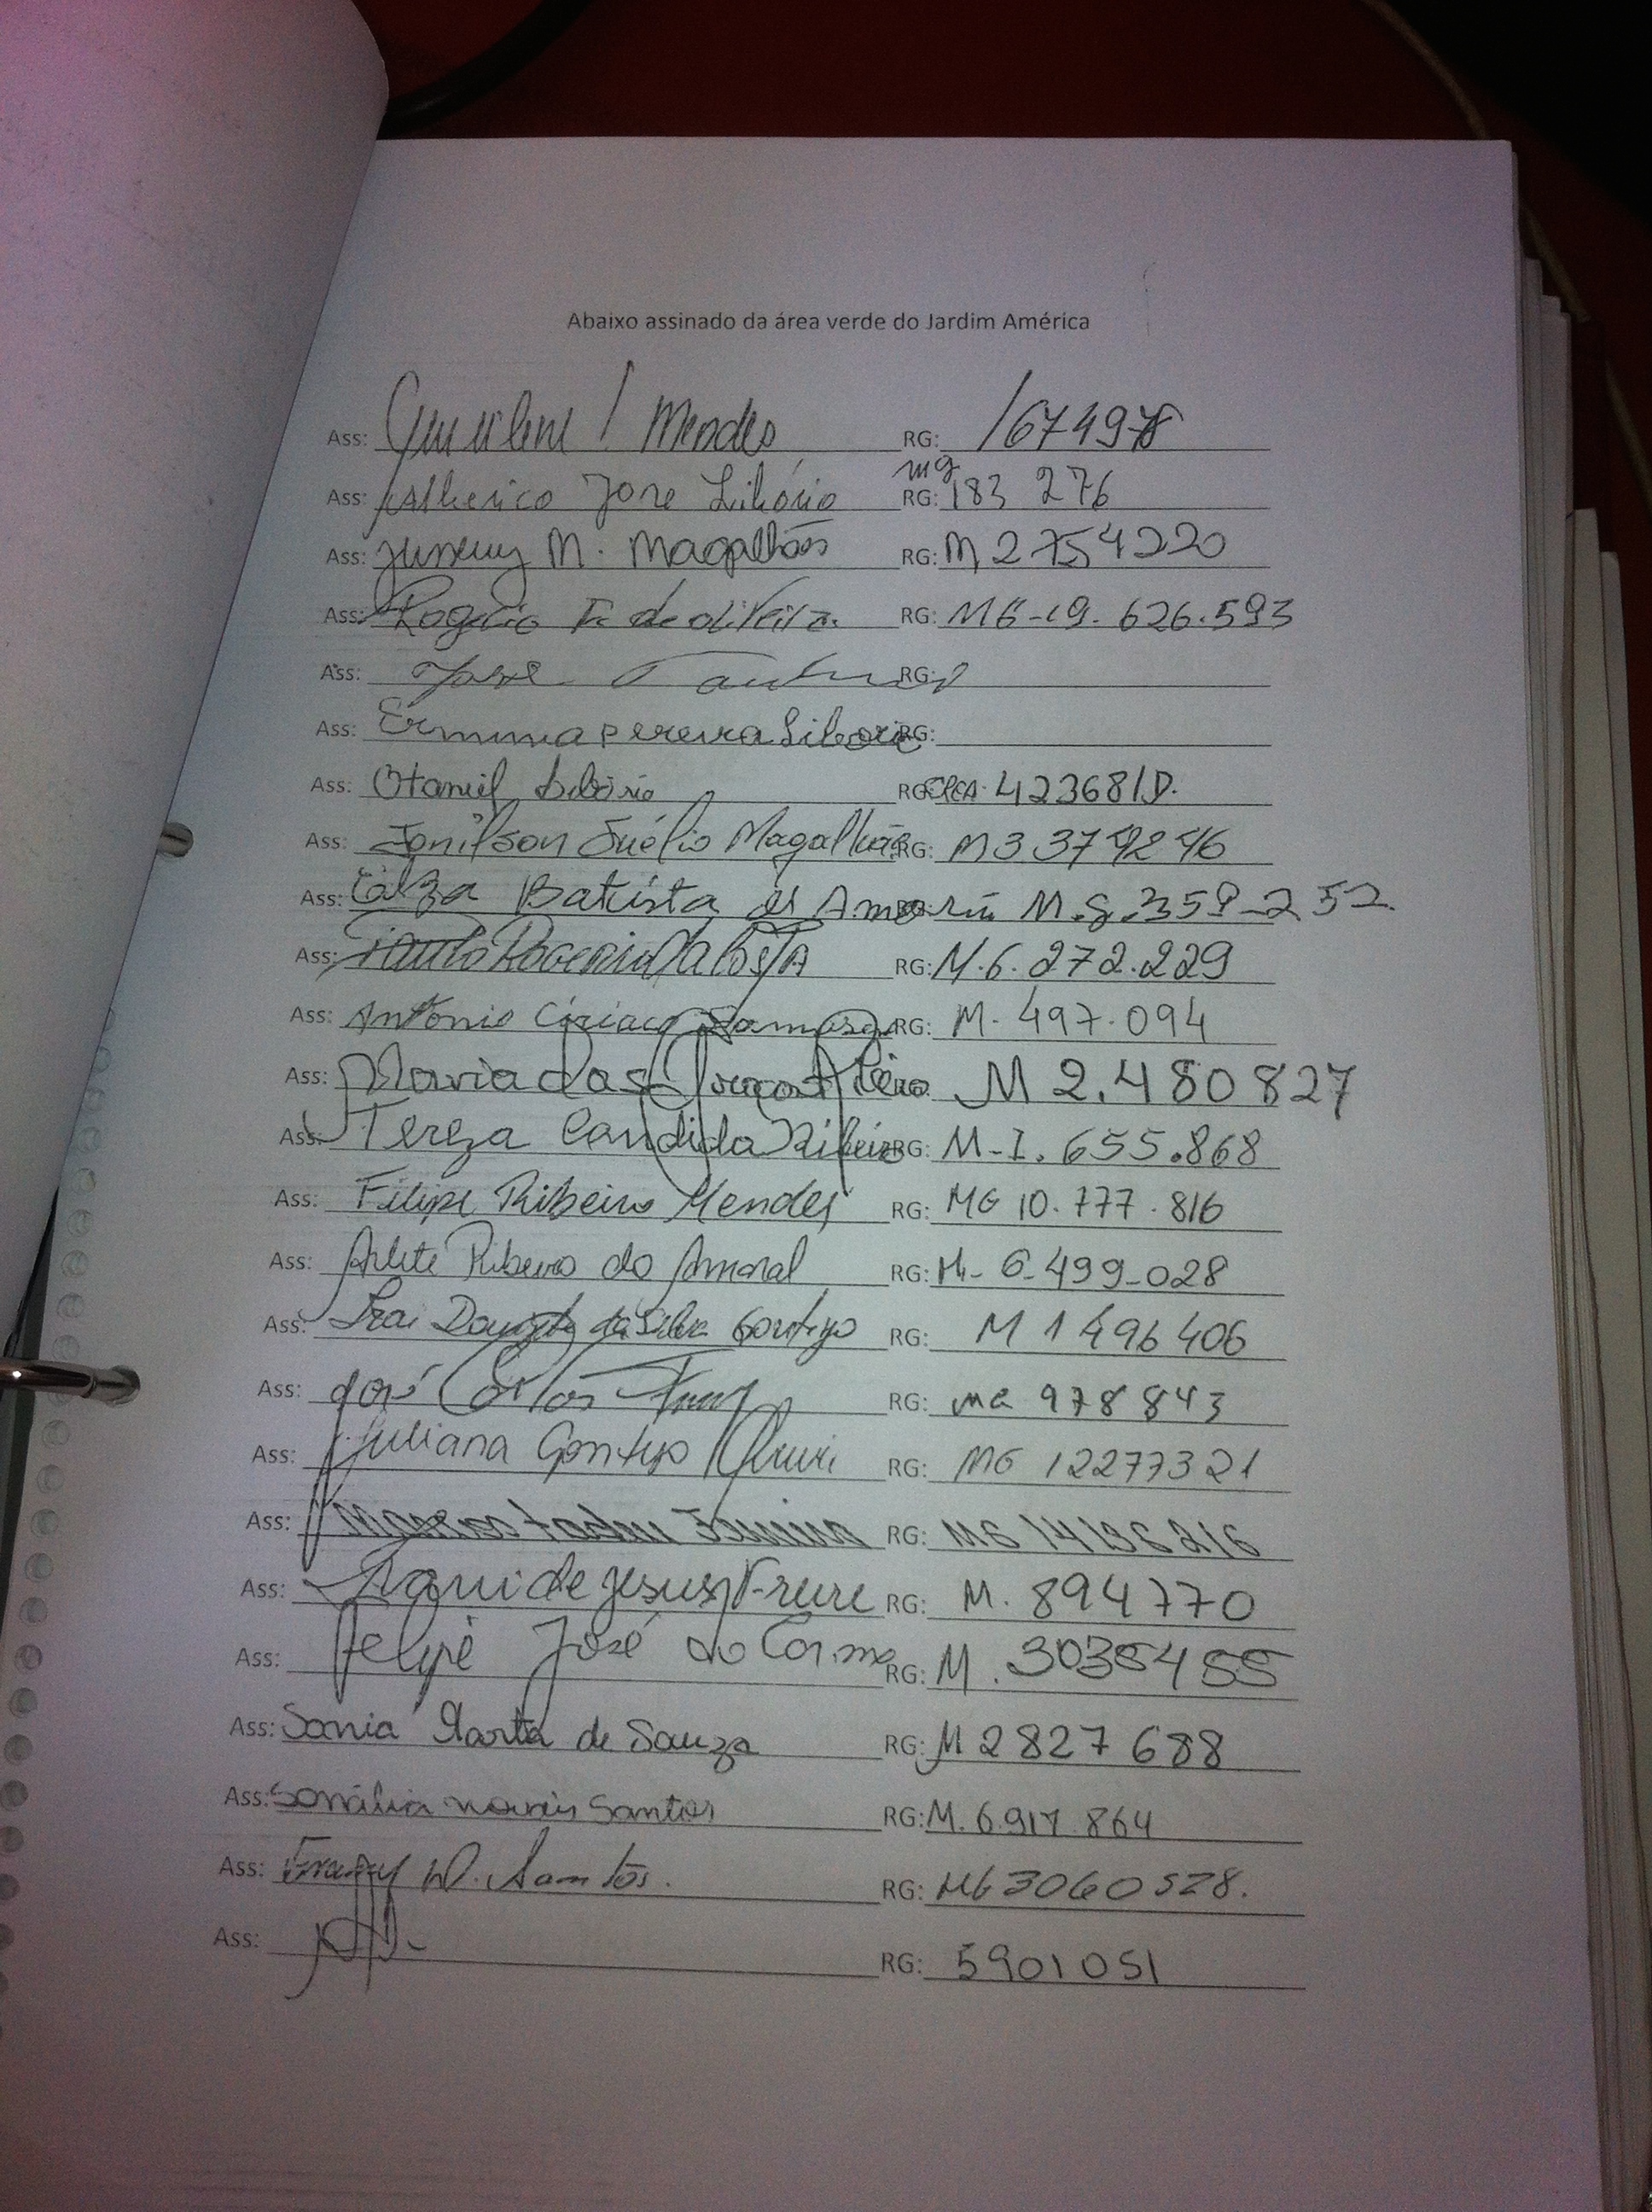 Abaixo assinado da área verde do Jardim América
Ass: Mendes RG: 1674978
Ass: Alberico Jose Libório RG: mg 183 276
Ass: M. Magalhães RG: M 2754220
Ass: Rogério F. de oliveira RG: MG-19.626.593
Ass: Jose RG:
Ass: Erminia pereira Liborio RG:
Ass: Otaniel Libório RG: CREA 42368/D.
Ass: Jonilson Suélio Magalhães RG: M3
Ass: Batista de Amorim M.g.359-252
Ass: Paulo Rogerio da Costa RG: M.6.272.229
Ass: Antônio Ciriaco RG: M-497.094
Ass: Maria das Graças RG: M 2.480827
Ass: Tereza Candida Ribeiro RG: M-1.655.868
Ass: Filipe Ribeiro Mendes RG: MG 10.777.816
Ass: Arlete Ribeiro do Amaral RG: M-6-499-028
Ass: da Silva Gontijo RG: M 1496406
Ass: José Carlos RG: MG 978843
Ass: Juliana Gontijo RG: MG 12277321
Ass: Marcos tadeu RG: MG 14196216
Ass: de Jesus Freire RG: M. 894770
Ass: Felipe José do Carmo RG: M. 3035455
Ass: Sonia Marta de Souza RG: M 2827688
Ass: Sonália novais Santos RG: M. 6.917.864
Ass: D. Santos. RG: MG 3060528.
Ass: RG: 5901051